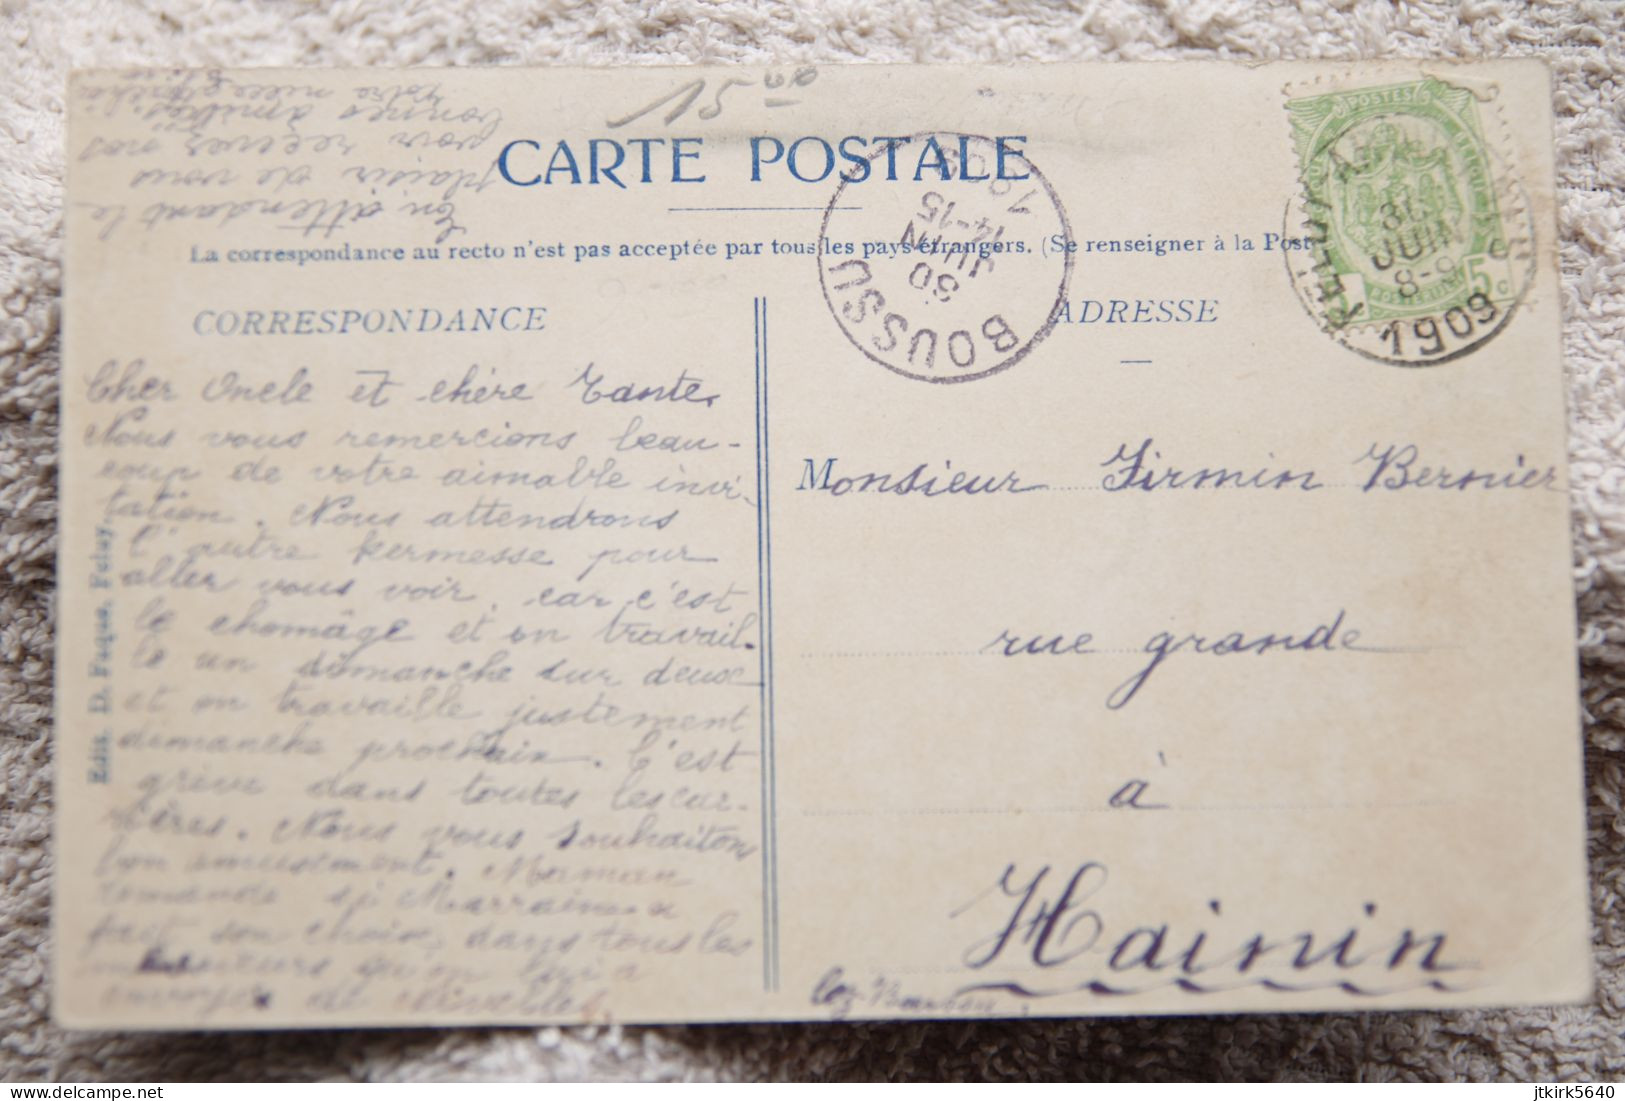 CARTE POSTALE
La correspondance au recto n'est pas acceptée par tous les pays étrangers. (Se renseigner à la Post
CORRESPONDANCE
ADRESSE
Cher Oncle et chère Tante,
Nous vous remercions beau-
coup de votre aimable invi-
tation. Nous attendrons
l'autre kermesse pour
aller vous voir, car c'est
le chomâge et on travail-
le un dimanche sur deux
et on travaille justement
dimanche prochain. C'est
grève dans toutes les car-
rières. Nous vous souhaitons
bon amusement. Maman
demande si Marraine a
fait son choix, dans tous les
qu'on lui a
envoyés de Nivelles.
En attendant le
plaisir de vous
voir recevez nos
bonnes amitiés.
Votre nièce
Edit. D. Faque, Feluy.
Monsieur Firmin Bernier
rue grande
à
Hainin
BOUSSU
30
JUIN
14-15
1909
POSTES
5c
FELUY-ARQ
JUIN
8-9
1909
delcampe.net
jtkirk5640